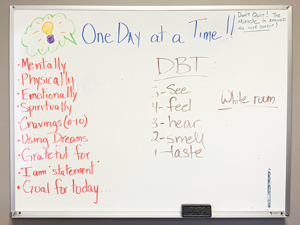 One Day at a Time!!
Don't Quit! The
Miracle is around
the next corner!
• Mentally
• Physically
• Emotionally
• Spiritually
• Cravings (0-10)
• Using Dreams
• Grateful for
• I am "statement"
• Goal for today...
DBT
5-See
4-feel
3-hear
2-smell
1-taste
White room